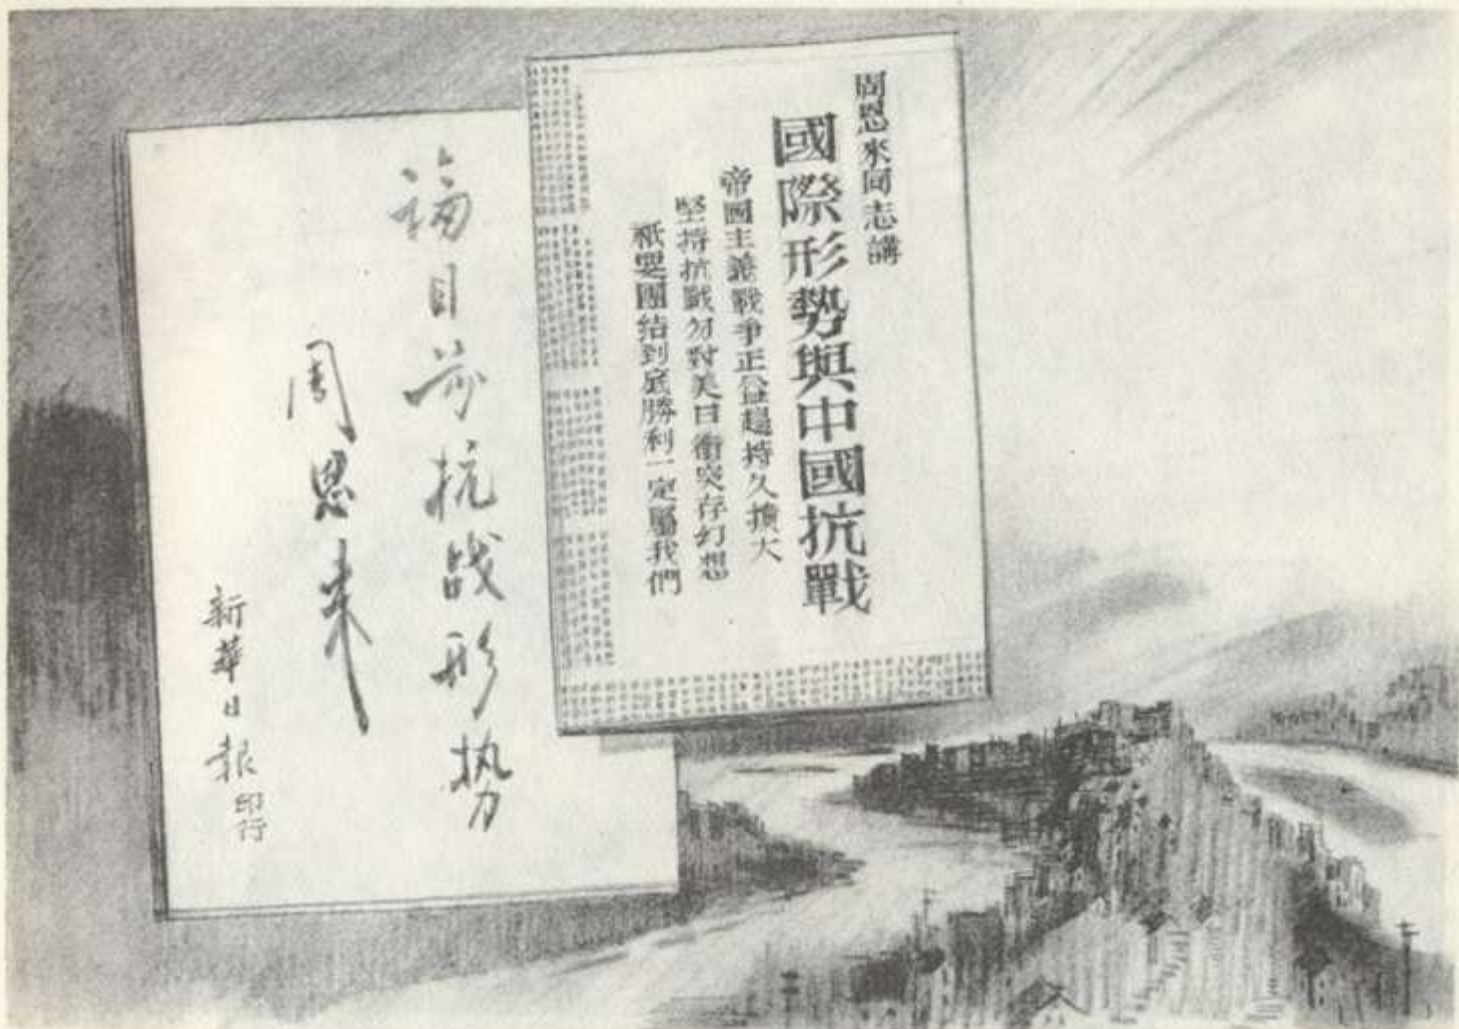 周恩來同志講
國際形勢與中國抗戰
帝國主義戰爭正益趨持久擴大
堅持抗戰勿對美日衝突存幻想
祇要團結到底勝利一定屬我們
論目前抗战形势
周恩来
新華日報印行